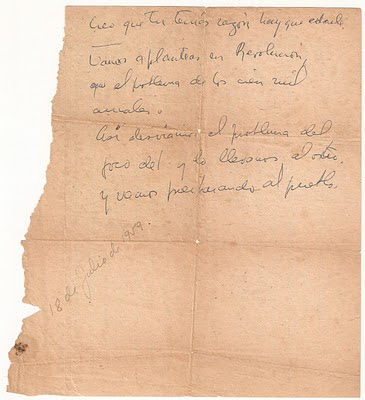 Creo que tu tenías razón hay que
Vamos a plantear en Revolución
que el problema de los cien mil
anuales.
Así desviamos el problema del
foco del y lo llevamos al otro.
y vamos preparando al pueblo.
18 de Julio de 1959.